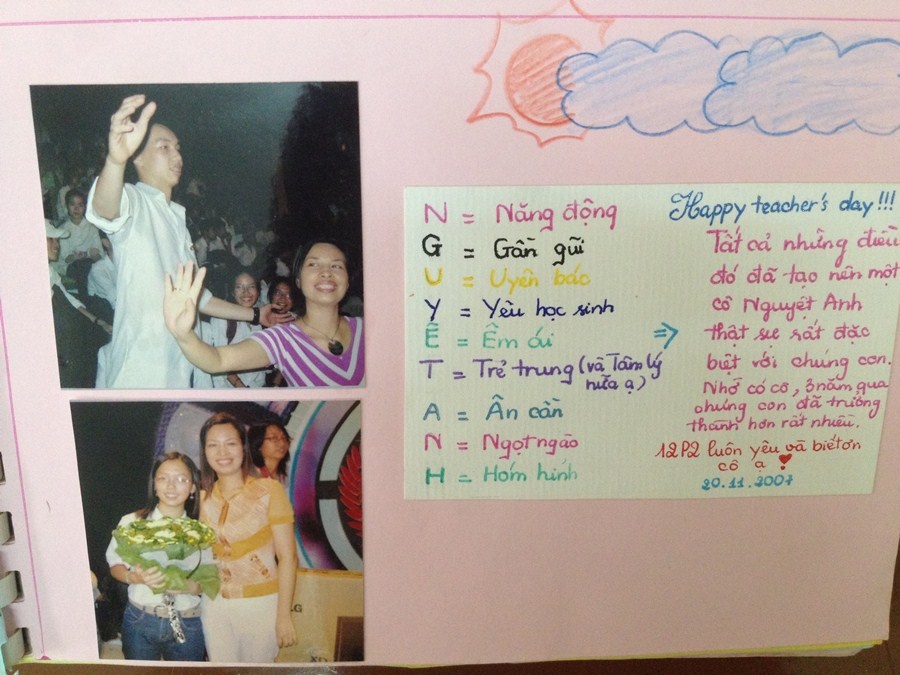 N = Năng động
G = Gần gũi
U = Uyên bác
Y = Yêu học sinh
Ê = Êm ái
T = Trẻ trung (và Tâm lý
nữa ạ)
A = Ân cần
N = Ngọt ngào
H = Hóm hỉnh
Happy teacher's day!!!
Tất cả những điều
đó đã tạo nên một
cô Nguyệt Anh
=> thật sự rất đặc
biệt với chúng con.
Nhờ có cô, 3 năm qua
chúng con đã trưởng
thành hơn rất nhiều.
12P2 luôn yêu và biết ơn
cô ạ
20.11.2007